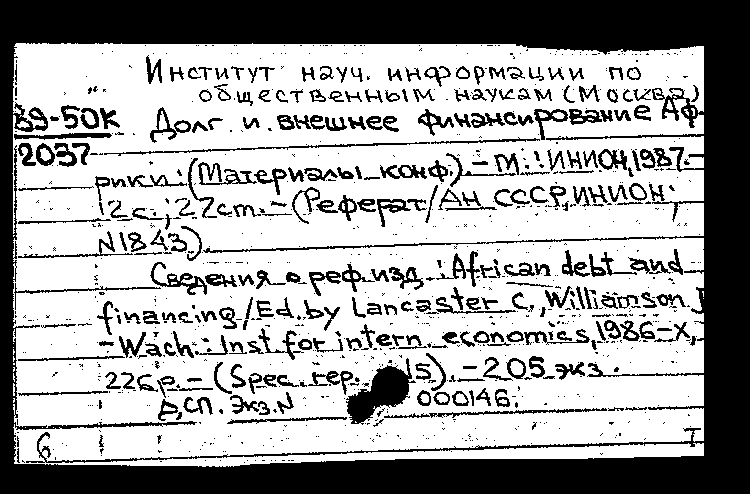 Институт науч. информации по
общественным наукам (Москва)
89-50К Долг и внешнее финансирование Аф-
2037
рики: (Материалы конф). - М.: ИНИОН, 1987. -
12с.; 27cm. - (Реферат/Ан СССР, ИНИОН;
N1843).
Сведения о реф. изд.: African debt and
financing/Ed. by Lancaster C., Williamson J
- Wach.: Inst. for intern. economics, 1986 - X,
226p. - (Spec. rep. 5). - 205 экз.
Д, СП. Экз. N 000146.
6 I